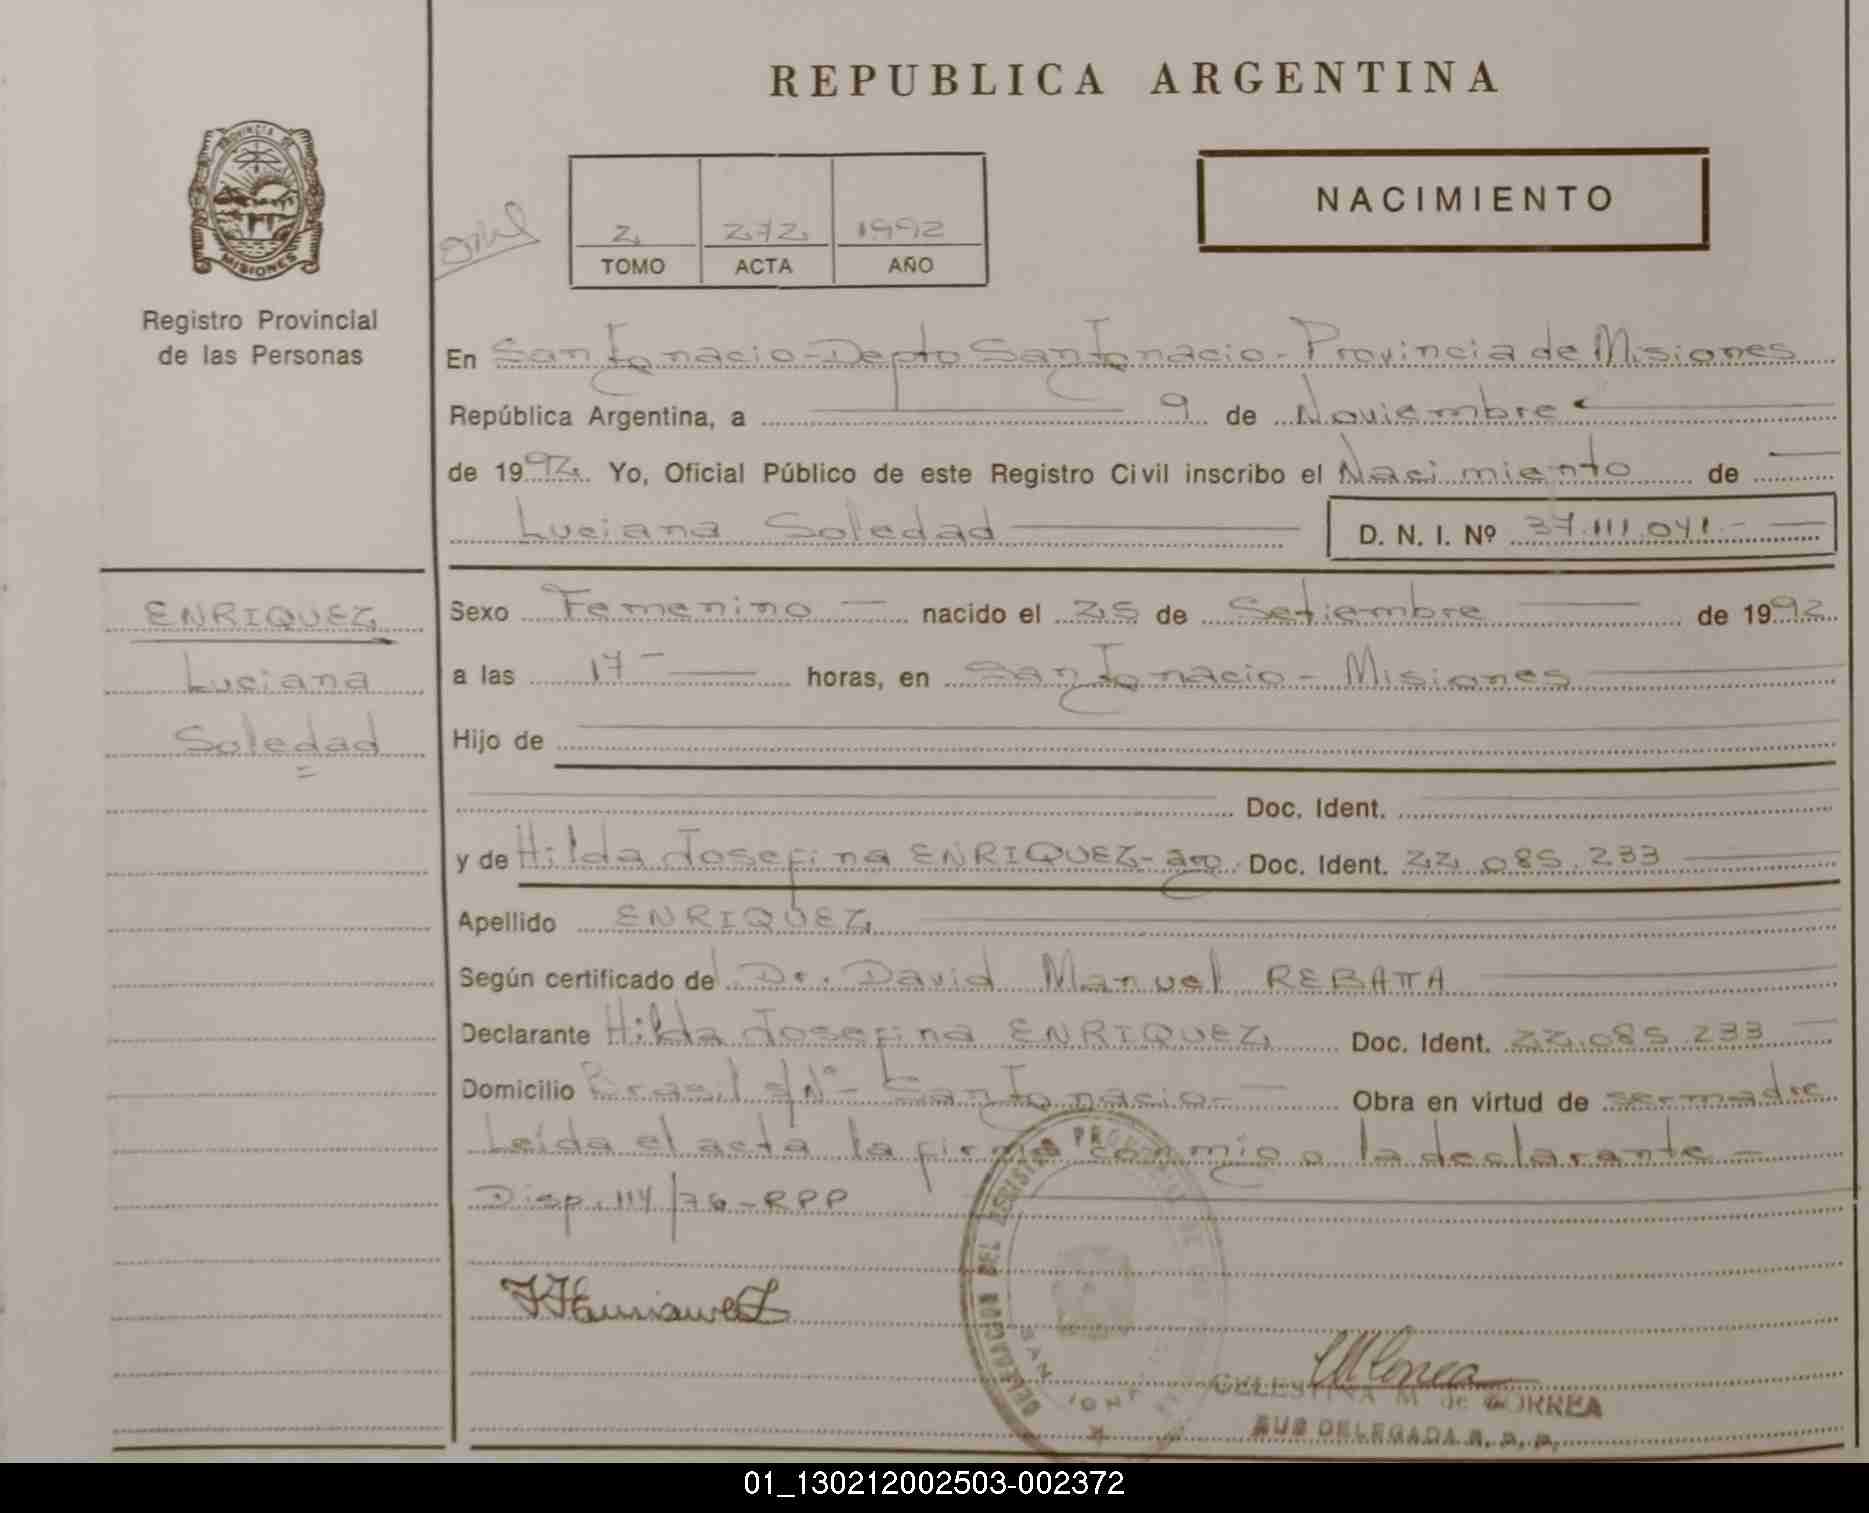 REPUBLICA ARGENTINA
PROVINCIA DE
MISIONES
Registro Provincial
de las Personas
NACIMIENTO
2 272 1992
TOMO ACTA AÑO
En San Ignacio - Depto San Ignacio - Provincia de Misiones
República Argentina, a 9 de Noviembre
de 1992. Yo, Oficial Público de este Registro Civil inscribo el Nacimiento de
Luciana Soledad D. N. I. Nº 37.111.041.-
ENRIQUEZ
Luciana
Soledad
Sexo Femenino nacido el 25 de Setiembre de 1992
a las 17 horas, en San Ignacio - Misiones
Hijo de
Doc. Ident.
y de Hilda Josefina ENRIQUEZ - arg. Doc. Ident. 22.085.233
Apellido ENRIQUEZ
Según certificado de Dr. David Manuel REBATTA
Declarante Hilda Josefina ENRIQUEZ Doc. Ident. 22.085.233
Domicilio Brasil s/Nº - San Ignacio - Obra en virtud de ser madre
Leída el acta la firma conmigo la declarante -
Disp. 114/76 - RPP
DELEGACION DEL REGISTRO
SAN
CELESTINA M de CORREA
SUB DELEGADA R. P. P.
01_130212002503-002372